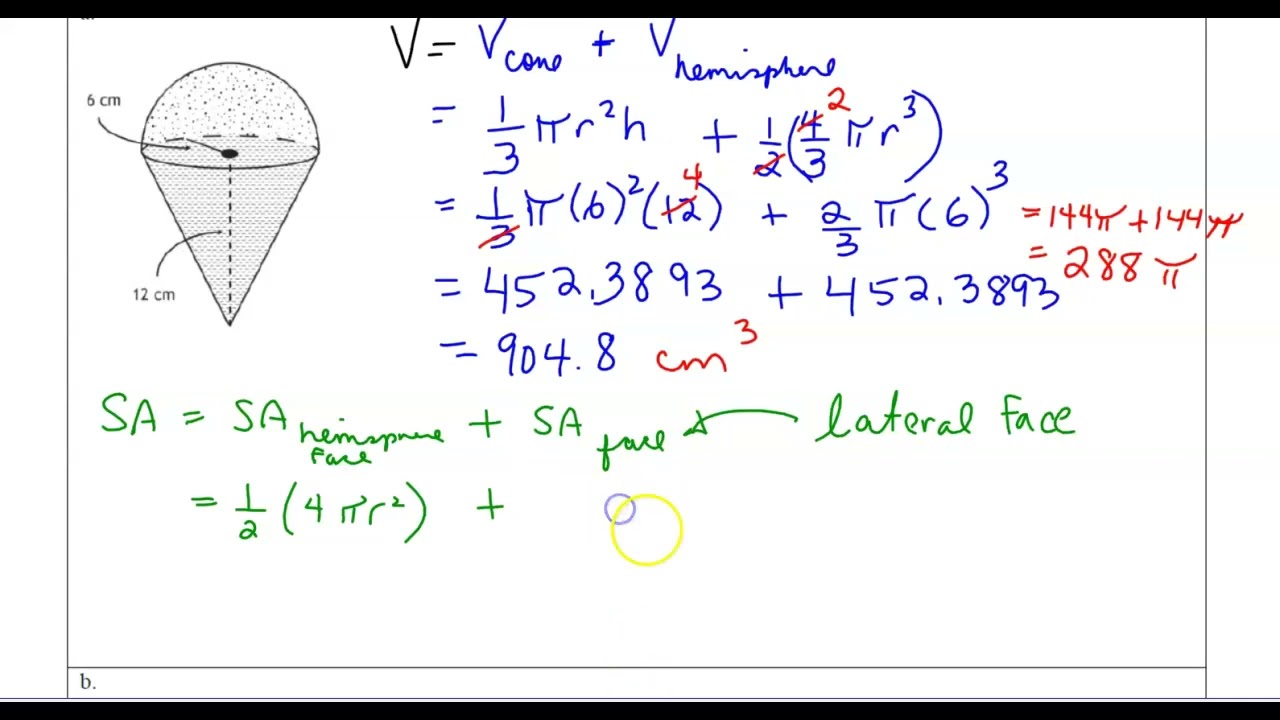 V = V cone + V hemisphere
6 cm
= 1/3 πr²h + 1/2(4/3 πr³) 2
= 1/3 π(6)²(12) 4 + 2/3 π(6)³ = 144π + 144π
= 288π
= 452.3893 + 452.3893
12 cm
= 904.8 cm³
SA = SA hemisphere face + SA face lateral face
= 1/2 (4πr²) +
b.